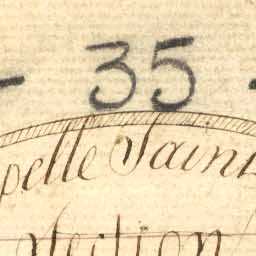 - 35 -
pelle Saint
Section